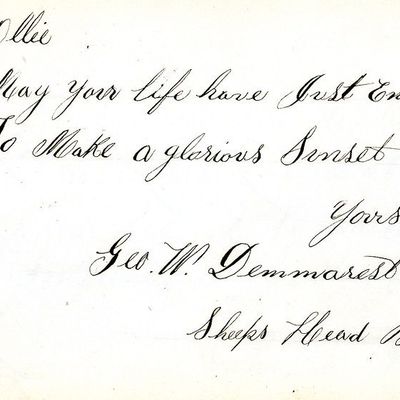 Ollie
May Your life have Just En
To Make a glorious Sunset
Yours
Geo. W. Demmarest
Sheeps Head B